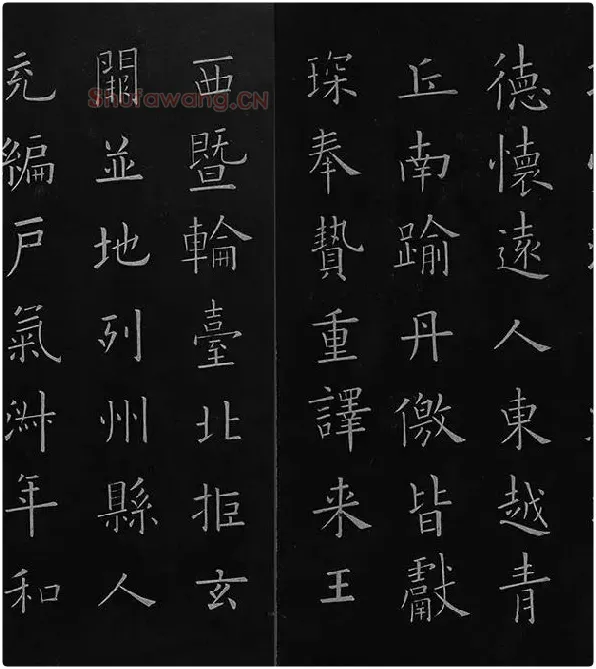 德懷遠人東越青
丘南踰丹儌皆獻
琛奉贄重譯来王
西暨輪臺北拒玄
闕並地列州縣人
充編戶氣淑年和
Shufawang.CN